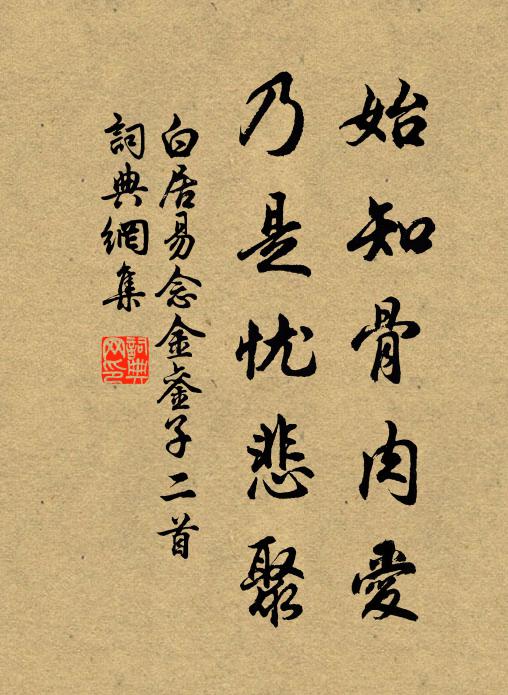 始知骨肉愛
乃是忧悲聚
白居易念金銮子二首
詞典網集
詞典网印